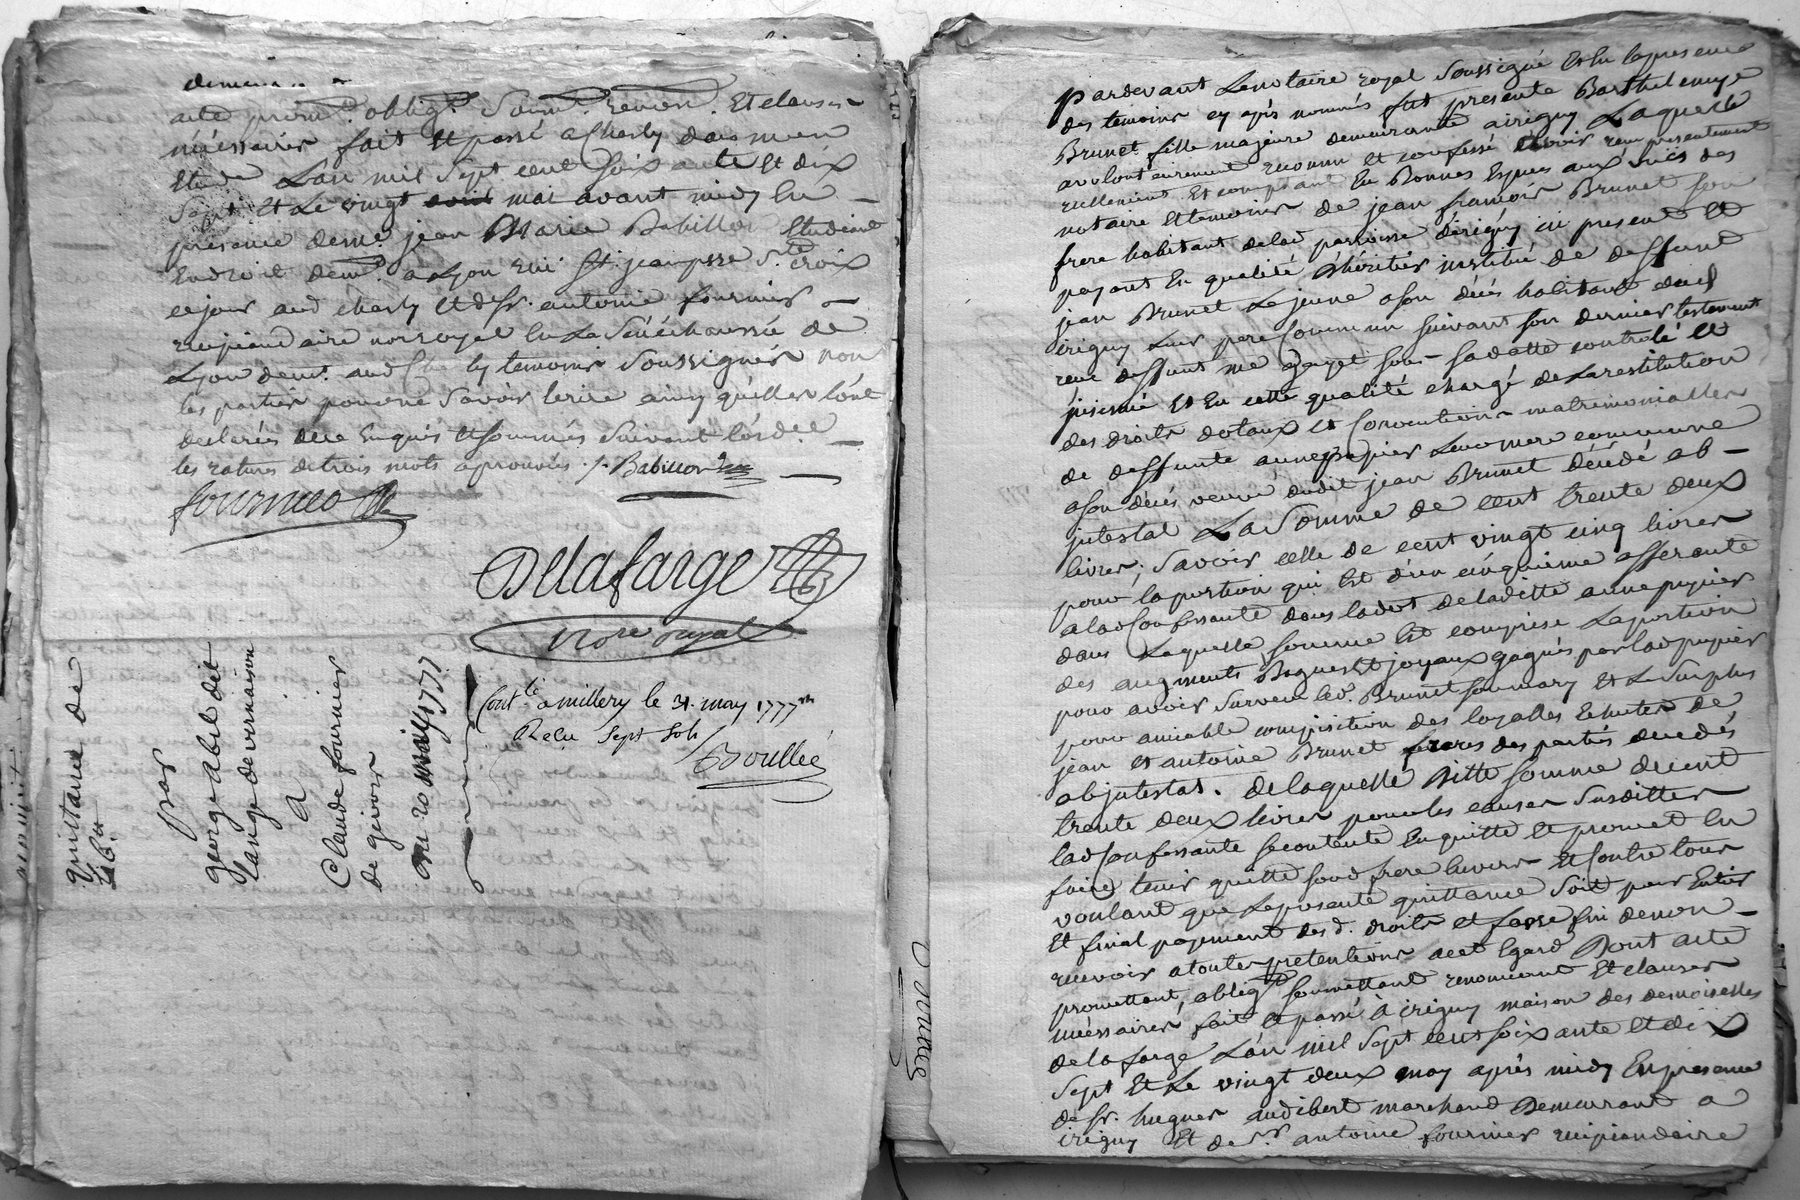 acte prom. oblig. soum. renon. Et clauses
nécéssaires fait Et passé a Charly dans mon
Etude L'an mil Sept cent soixante Et dix
Sept Et Le vingt mai avant midy En
présence de me jean Marie Babillon Etudiant
En droit dem. a Lyon rüe St. jean psse Ste. croix
ce jour aud charly Et de Sr. antoine fournier
recipiendaire noe royal En La Sénéchaussée de
Lyon demt. aud Cha ly temoins Soussignés non
les parties pour ne Savoir Ecrire ainsy qu'elles l'ont
déclarés de ce Enquis Et sommés suivant l'ord.
les ratures de trois mots aprouvées ./. Babillon
fournier
Delafarge
nore royal
Contlé a millery le 31. may 1777
Reçu Sept sols
Boullée
quittance de
par
george abel dit
Lange de vernaison
a
Claude fournier
de givors
du 20 may 1777
Pardevant Le notaire royal Soussigné Et En la presence
des temoins cy après nommés fut presente Barthelemye
Brunet fille majeure demeurante a irigny Laquelle
a volontairement reconnu Et confessé avoir reçu presentement
reellement Et comptant En Bonnes Espèces aux vües des
notaire Et temoins de jean françois Brunet son
frere habitant de lad parroisse d'irigny ici present Et
payant En qualité d'héritier institué de deffunt
jean Brunet Le jeune a son décès habitant dud
irigny Leur pere Commun suivant son dernier testament
reçu deffunt me gayet sous sa datte controlé Et
insinué Et En cette qualité chargé de La restitution
des droits dotaux Et Conventions matrimonialles
de deffunte anne pupier Leur mere commune
a son décès veuve dudit jean Brunet décédé ab
intestat La Somme de cent trente deux
livres, Savoir celle de cent vingt cinq livres
pour la portion qui Est d'un cinquieme afferante
a lad Confessante dans la dot de laditte anne pupier
dans Laquelle somme Est comprise La portion
des augments Bagues Et joyaux gagnés par lad pupier
pour avoir Survecu led. Brunet son mary Et Le Surplus
pour amiable composition des loyalles Echutes de
jean Et antoine Brunet freres des parties decedés
ab intestat. de laquelle ditte somme de cent
trente deux livres pour les causes Susdittes
lad Confessante se contente En quitte Et promet En
faire tenir quitte sond frere Envers Et Contre tous
voulant que La presente quittance Soit pour Entier
Et final payement des d. droits Et fasse fin de non
recevoir a toutes pretentions a cet Egard Dont acte
promettant, oblig. soumettant renonceant Et clauses
nécéssaires fait Et passé à irigny maison des demoiselles
delafarge L'an mil Sept cent soixante Et dix
Sept Et Le vingt deux may après midy En presence
de Sr. hugues audibert marchand Demeurant a
irigny Et de Sr. antoine fournier recipiendaire